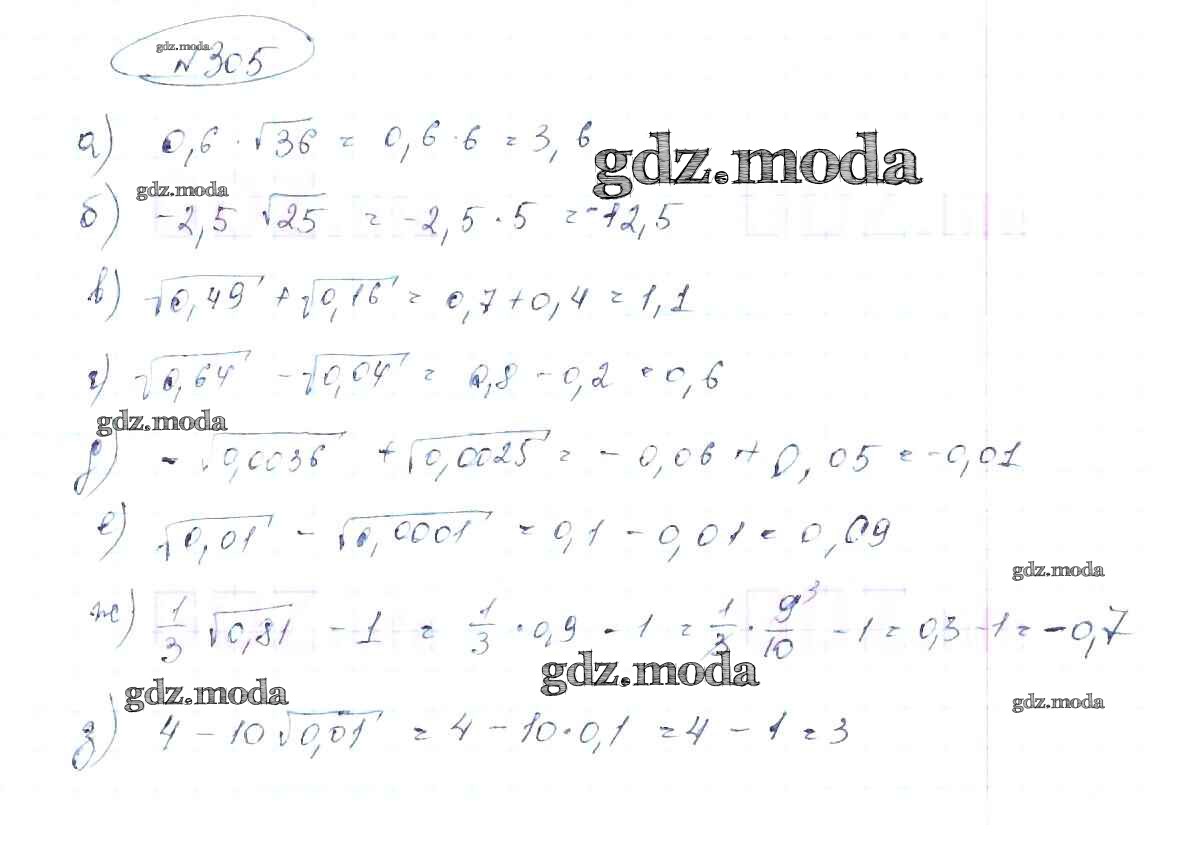 gdz.moda
№305
а) 0,6 · √36 = 0,6 · 6 = 3,6
gdz.moda
gdz.moda
б) -2,5 √25 = -2,5 · 5 = -12,5
в) √0,49 + √0,16 = 0,7 + 0,4 = 1,1
г) √0,64 - √0,04 = 0,8 - 0,2 = 0,6
gdz.moda
д) -√0,0036 + √0,0025 = -0,06 + 0,05 = -0,01
е) √0,01 - √0,0001 = 0,1 - 0,01 = 0,09
gdz.moda
ж) 1/3 √0,81 - 1 = 1/3 · 0,9 - 1 = 1/3 · 9³/10 - 1 = 0,3 - 1 = -0,7
gdz.moda
gdz.moda
gdz.moda
з) 4 - 10√0,01 = 4 - 10 · 0,1 = 4 - 1 = 3